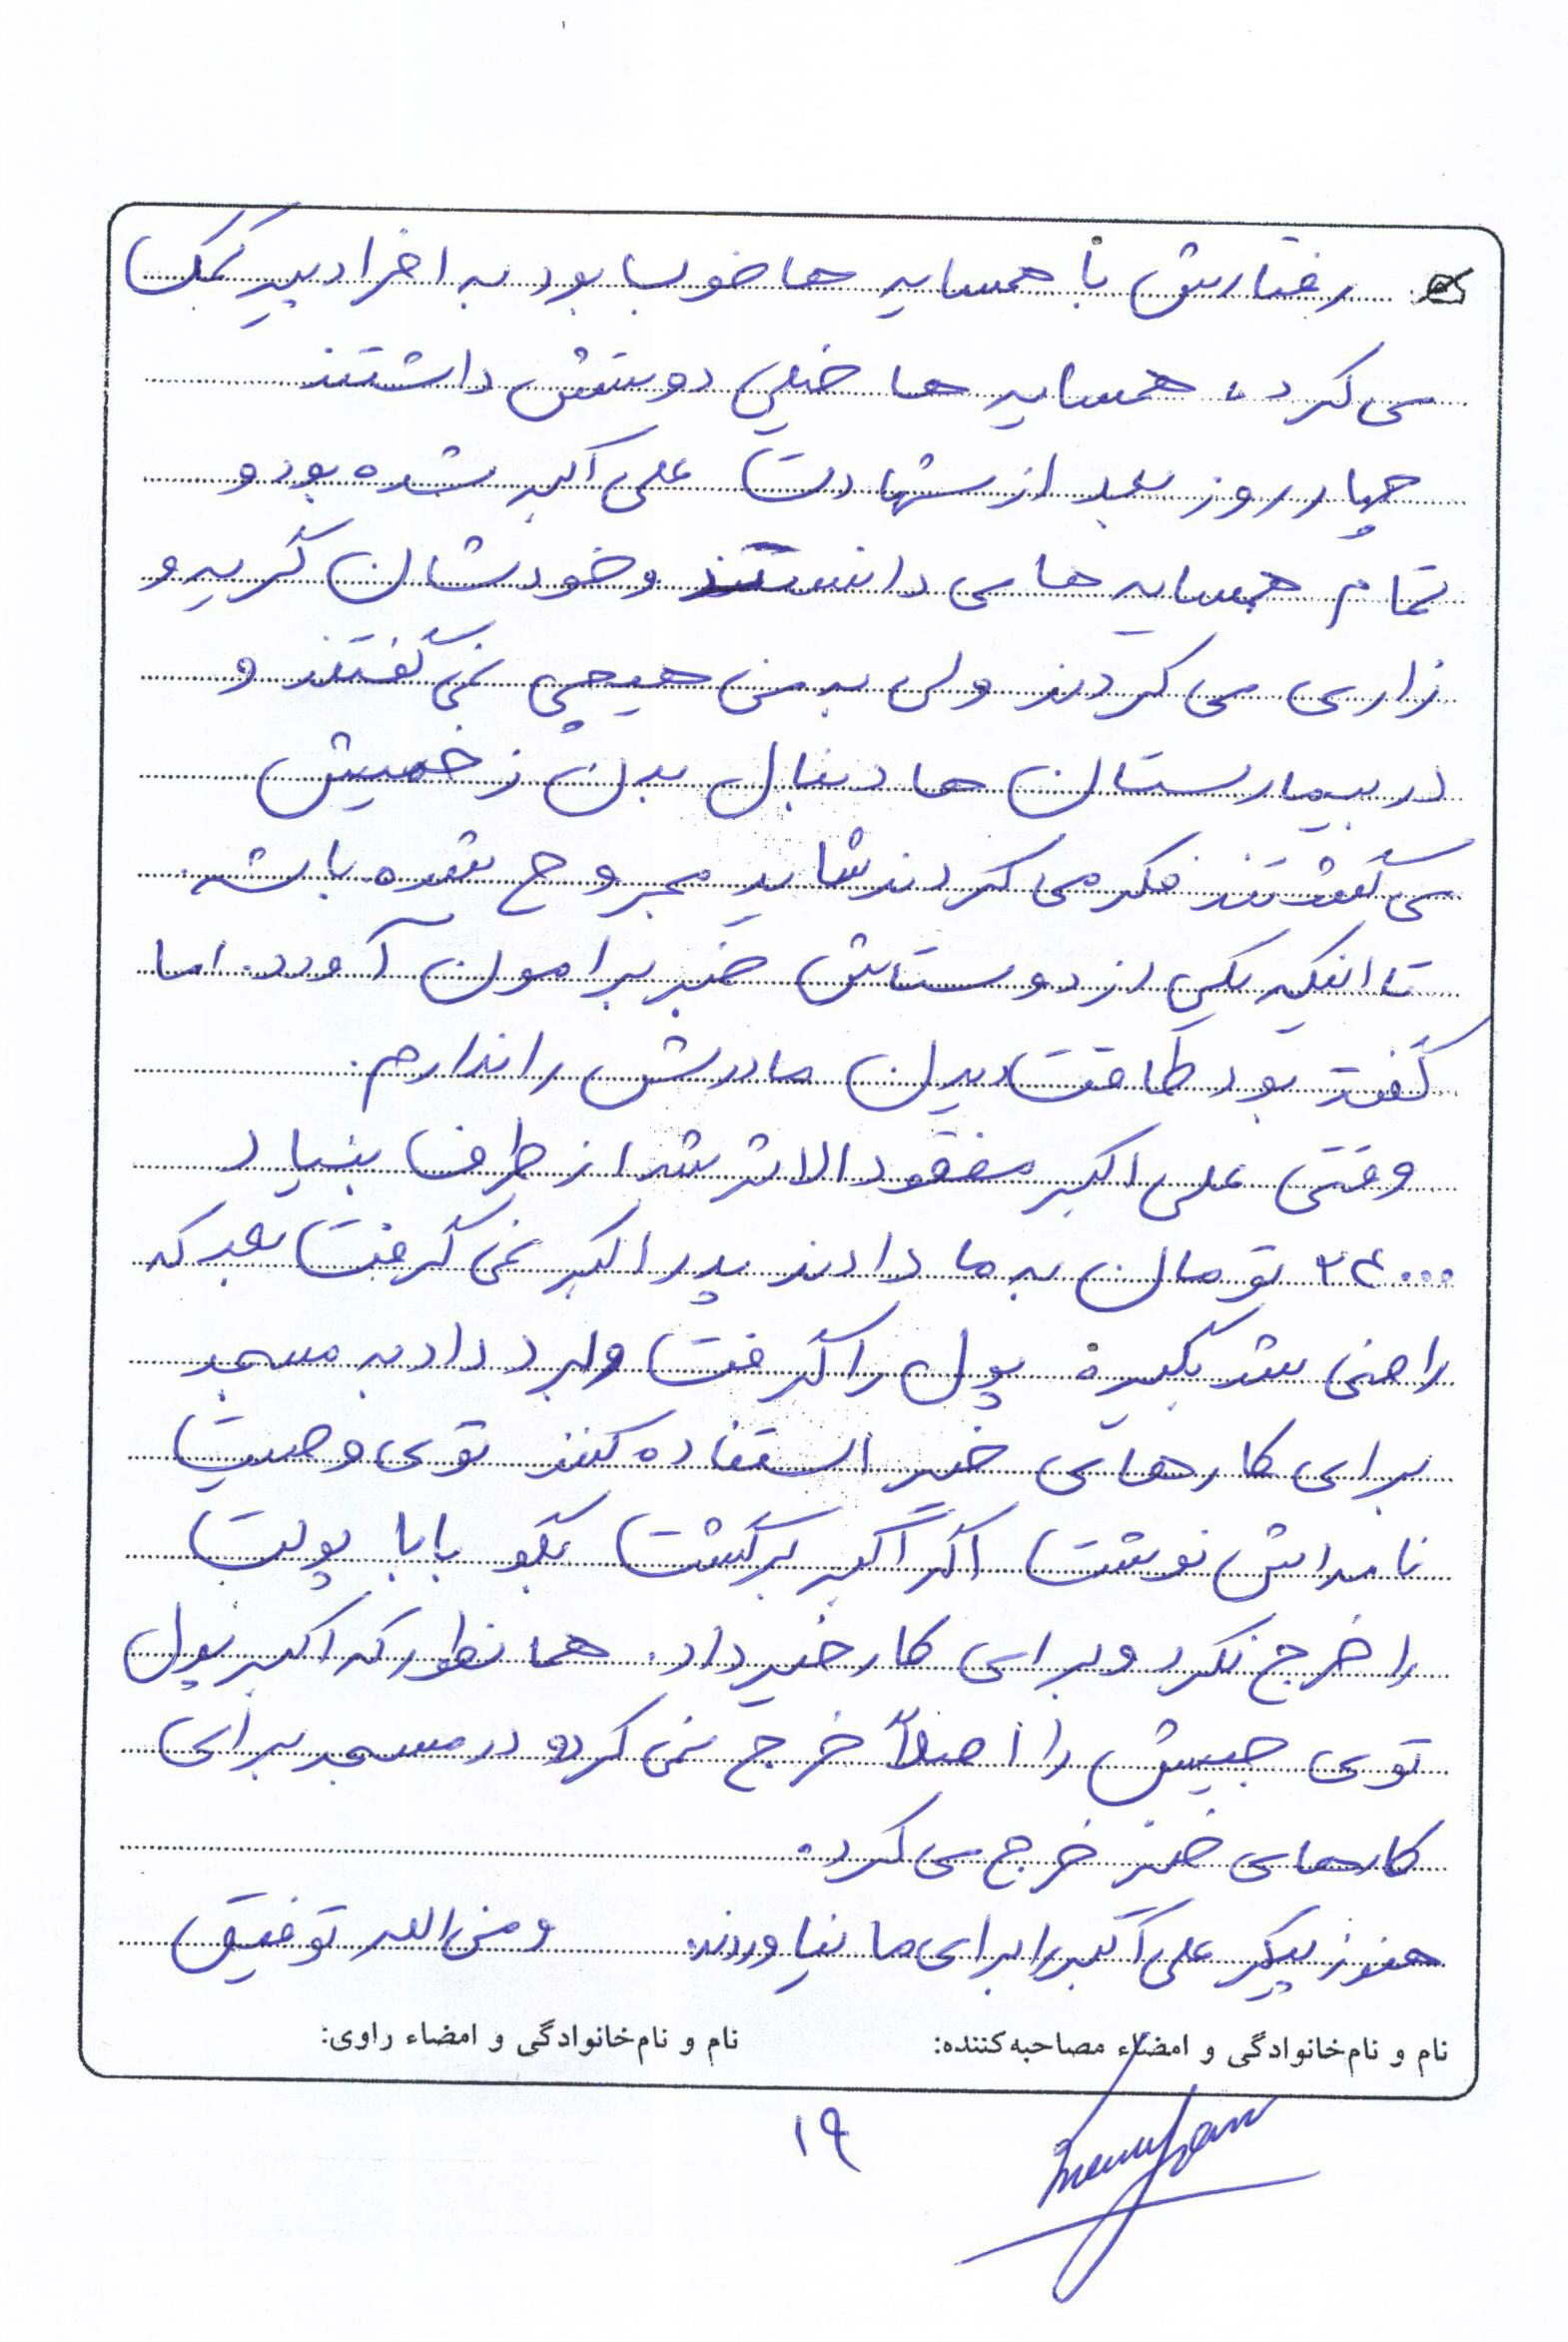 رفتارش با همسایه ها خوب بود به افراد پیر کمک
می کرد، همسایه ها خیلی دوستش داشتند
چهار روز بعد از شهادت علی اکبر شده بود و
تمام همسایه ها می دانستند و خودشان گریه و
زاری می کردند ولی به من هیچی نمی گفتند و
در بیمارستان ها دنبال بدن زخمیش
می گشتند فکر می کردند شاید مجروح شده باشه.
تا اینکه یکی از دوستاش خبر برامون آورد. اما
گفته بود طاقت دیدن مادرش را ندارم.
وقتی علی اکبر مفقودالاثر شد از طرف بنیاد
۲۴۰۰۰ تومان به ما دادند پدر اکبر نمی گرفت بعد که
راضی شد بگیره پول را گرفت و برد داد به مسجد
برای کارهای خیر استفاده کنند توی وصیت
نامه اش نوشت اگر اکبر برگشت بگو بابا پولت
را خرج نکرد و برای کار خیر داد. همانطور که اکبر پول
توی جیبش را اصلاً خرج نمی کرد و در مسجد برای
کارهای خیر خرج می کرد.
هنوز پیکر علی اکبر را برای ما نیاوردند. و من الله توفیق
نام و نام‌خانوادگی و امضاء مصاحبه‌کننده: نام و نام‌خانوادگی و امضاء راوی:
۱۹